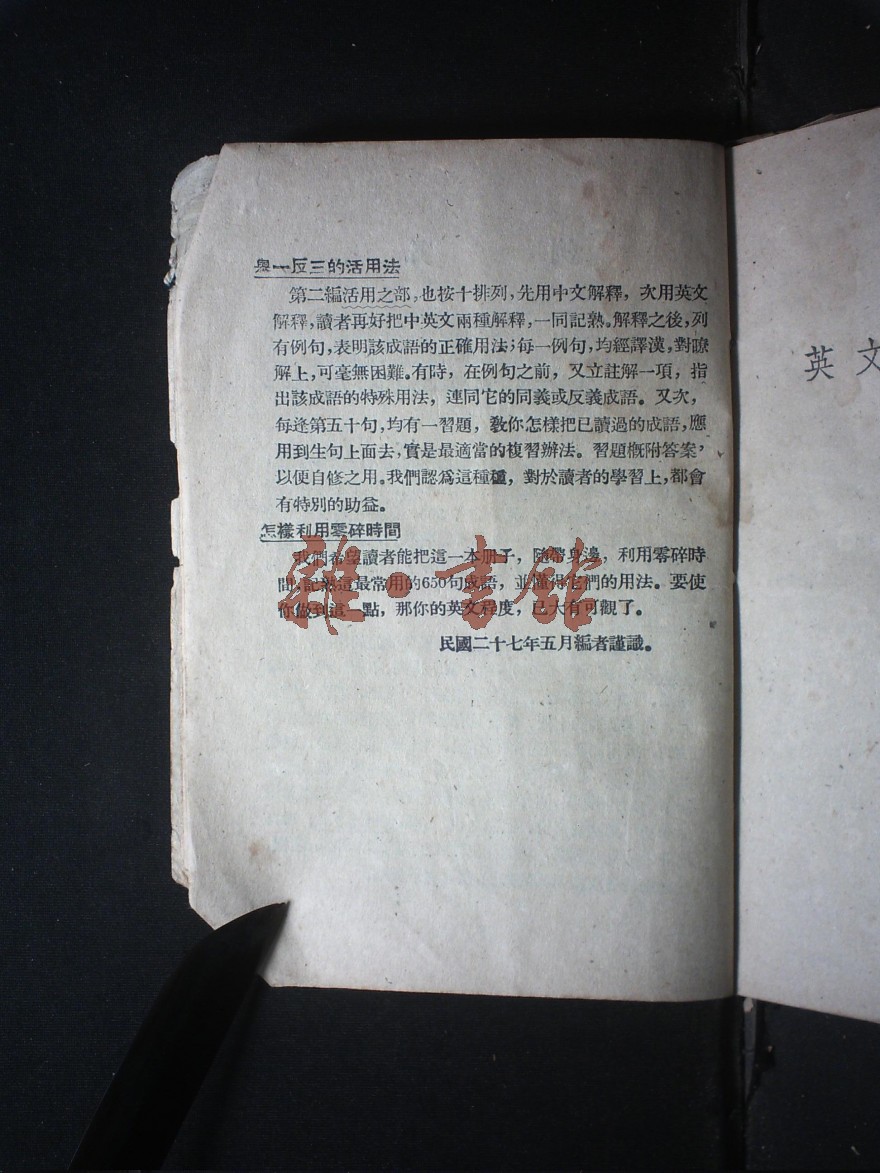 舉一反三的活用法
第二編活用之部,也按十排列,先用中文解釋,次用英文
解釋,讀者再好把中英文兩種解釋,一同記熟。解釋之後,列
有例句,表明該成語的正確用法;每一例句,均經譯漢,對瞭
解上,可毫無困難。有時,在例句之前,又立註解一項,指
出該成語的特殊用法,連同它的同義或反義成語。又次,
每逢第五十句,均有一習題,教你怎樣把已讀過的成語,應
用到生句上面去,實是最適當的複習辦法。習題概附答案,
以便自修之用。我們認爲這種種,對於讀者的學習上,都會
有特別的助益。
怎樣利用零碎時間
我們希望讀者能把這一本册子,隨帶身邊,利用零碎時
間,記熟這最常用的650句成語,並懂得它們的用法。要使
你做到這一點,那你的英文程度,已大有可觀了。
民國二十七年五月編者謹識。
雜·書館
英文